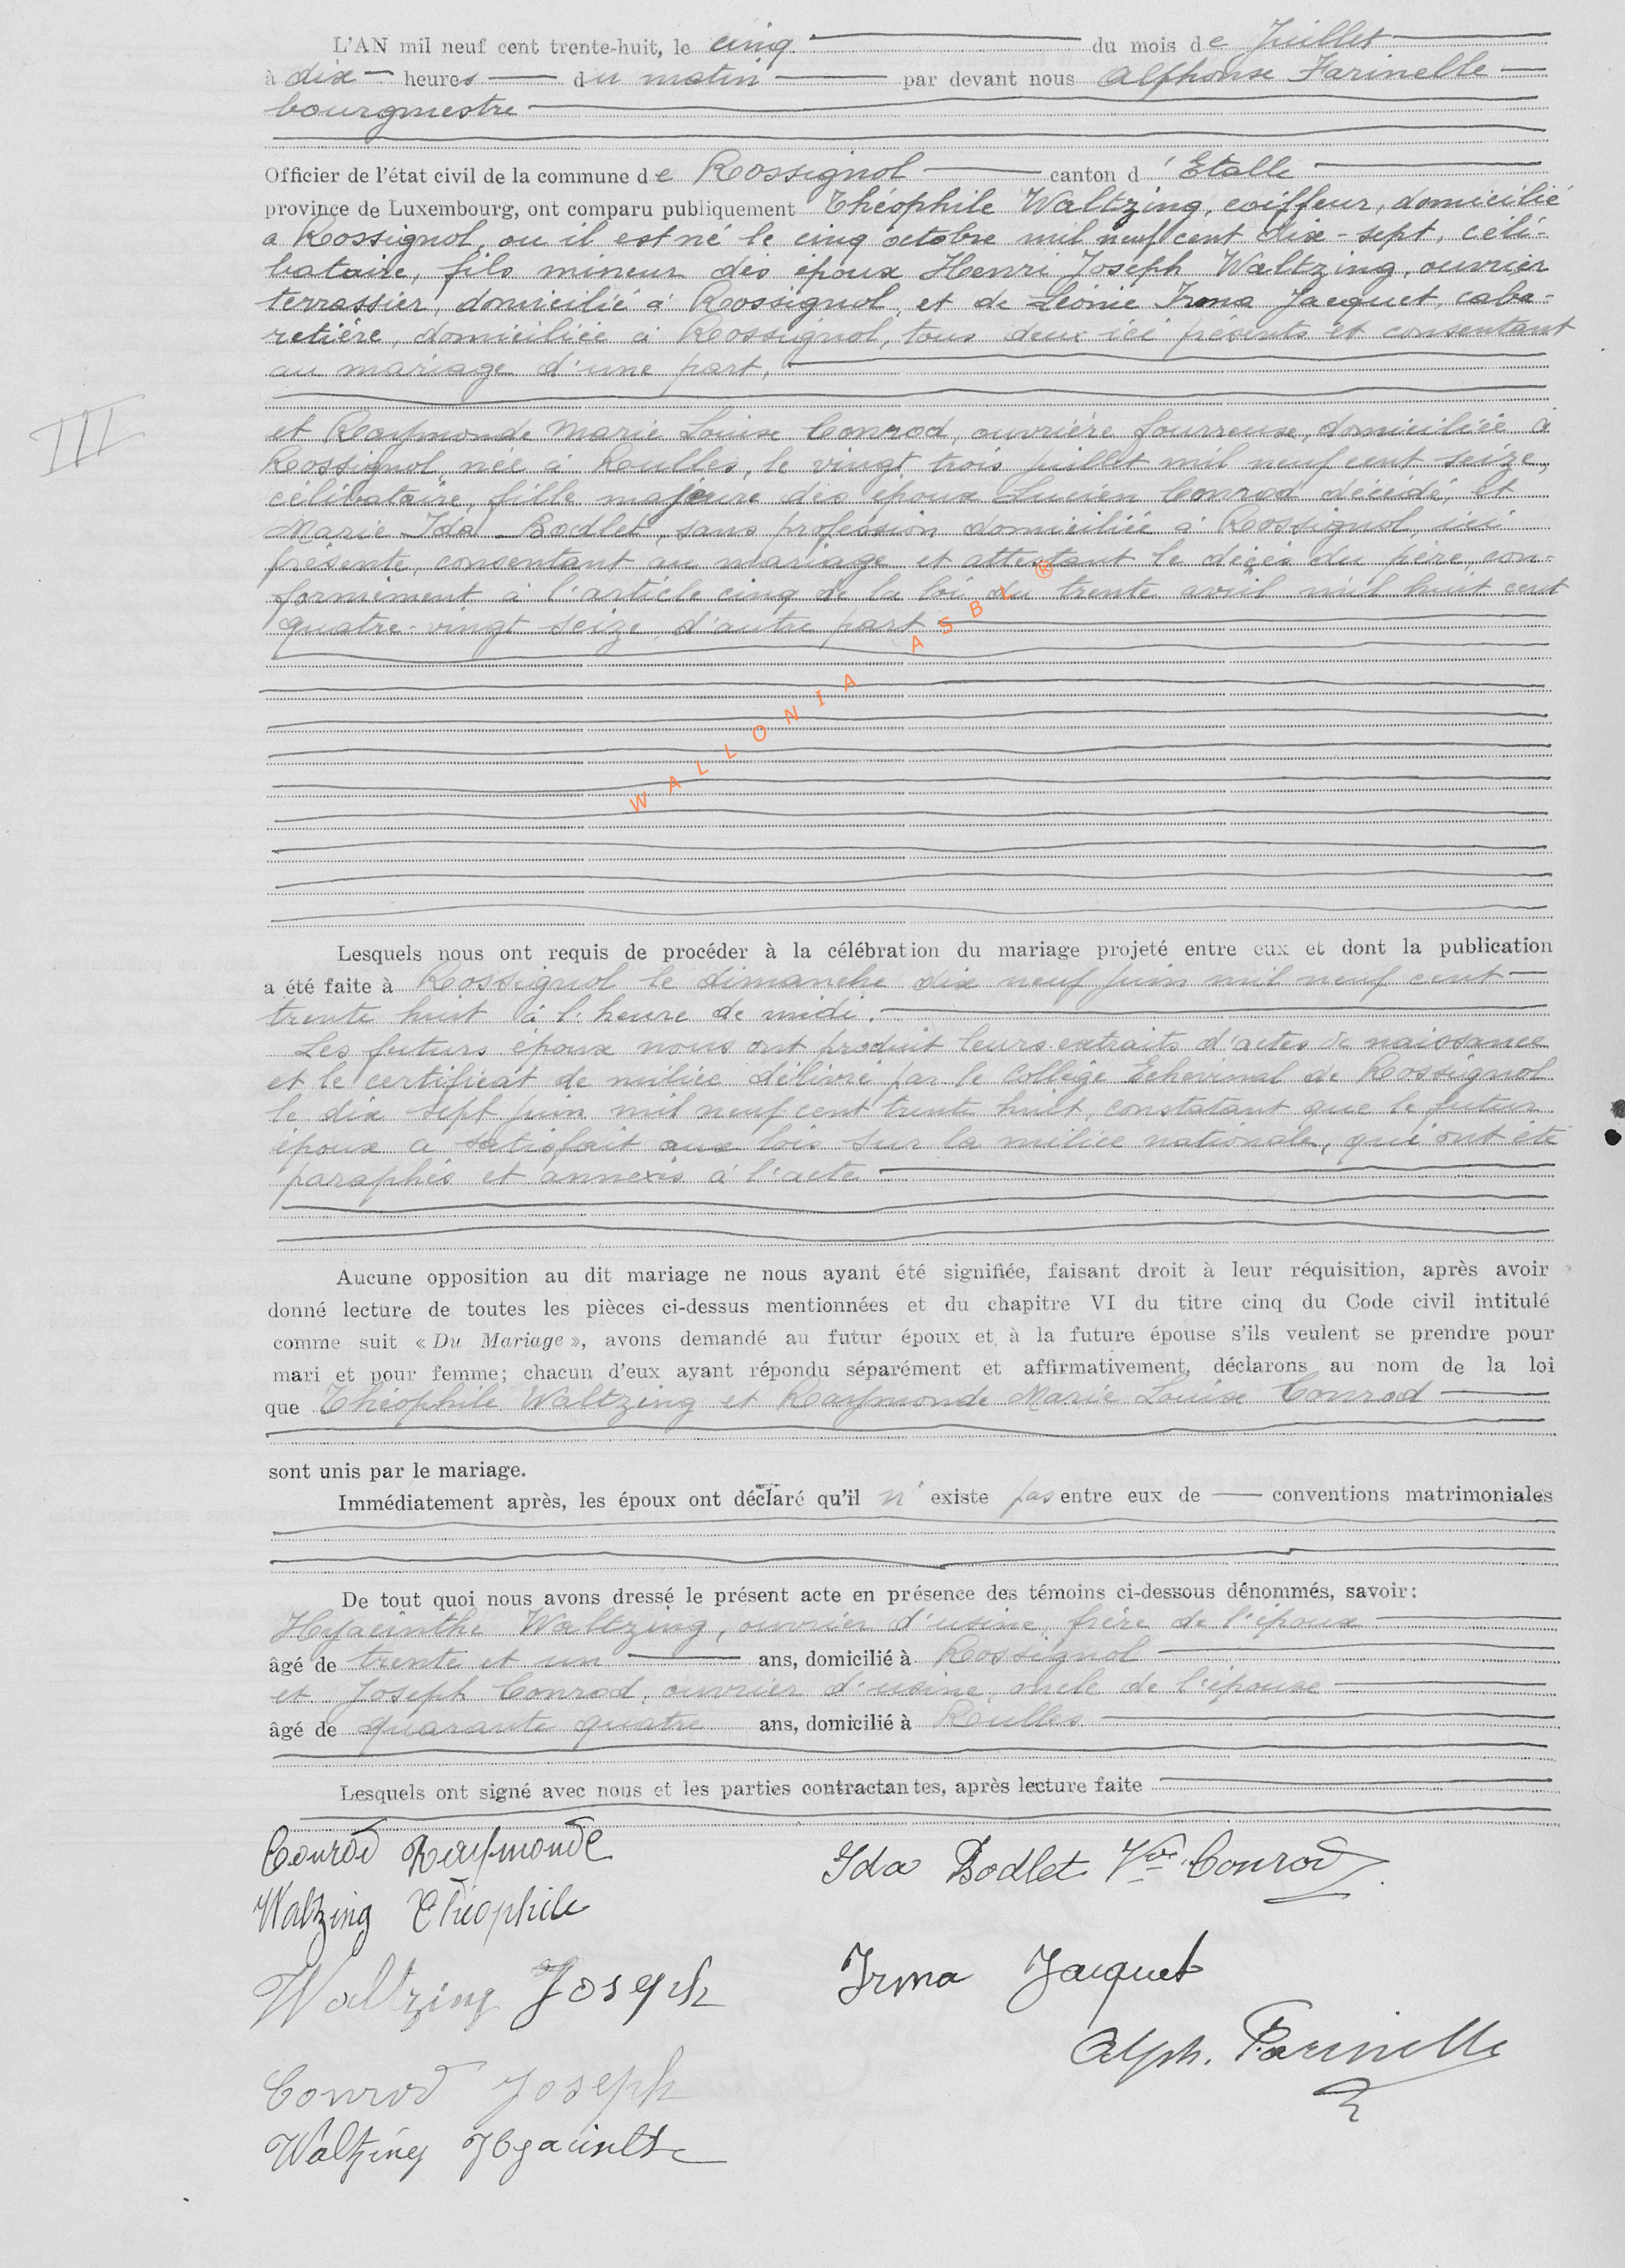 L'AN mil neuf cent trente-huit, le cinq du mois de Juillet
à dix heures du matin par devant nous Alphonse Farinelle
bourgmestre
Officier de l'état civil de la commune de Rossignol canton d'Etalle
province de Luxembourg, ont comparu publiquement Théophile Waltzing, coiffeur, domicilié
a Rossignol, ou il est né le cinq octobre mil neuf cent dix-sept, céli-
bataire, fils mineur des époux Henri Joseph Waltzing, ouvrier
terrassier, domicilié à Rossignol, et de Léonie Irma Jacquet, caba-
retière, domiciliée à Rossignol, tous deux ici présents et consentant
au mariage d'une part,
III
et Raymonde Marie Louise Conrod, ouvrière fourreuse, domiciliée à
Rossignol, née à Rulles, le vingt trois juillet mil neuf cent seize,
célibataire, fille majeure des époux Lucien Conrod décédé, et
Marie Ida Bodlet, sans profession domiciliée à Rossignol, ici
présente, consentant au mariage et attestant le décès du père, con-
formément à l'article cinq de la loi du trente avril mil huit cent
quatre-vingt seize, d'autre part
WALLONIA ASBL ®
Lesquels nous ont requis de procéder à la célébration du mariage projeté entre eux et dont la publication
a été faite à Rossignol le dimanche dix neuf juin mil neuf cent
trente huit à l'heure de midi.
Les futurs époux nous ont produit leurs extraits d'actes de naissance
et le certificat de milice délivré par le Collège Echevinal de Rossignol
le dix sept juin mil neuf cent trente huit, constatant que le futur
époux a satisfait aux lois sur la milice nationale, qui ont été
paraphés et annexés à l'acte
Aucune opposition au dit mariage ne nous ayant été signifiée, faisant droit à leur réquisition, après avoir
donné lecture de toutes les pièces ci-dessus mentionnées et du chapitre VI du titre cinq du Code civil intitulé
comme suit « Du Mariage », avons demandé au futur époux et à la future épouse s'ils veulent se prendre pour
mari et pour femme; chacun d'eux ayant répondu séparément et affirmativement, déclarons au nom de la loi
que Théophile Waltzing et Raymonde Marie Louise Conrod
sont unis par le mariage.
Immédiatement après, les époux ont déclaré qu'il n'existe pas entre eux de conventions matrimoniales
De tout quoi nous avons dressé le présent acte en présence des témoins ci-dessous dénommés, savoir:
Hyacinthe Waltzing, ouvrier d'usine, frère de l'époux
âgé de trente et un ans, domicilié à Rossignol
et Joseph Conrod, ouvrier d'usine, oncle de l'épouse
âgé de quarante quatre ans, domicilié à Rulles
Lesquels ont signé avec nous et les parties contractantes, après lecture faite
Conrod Raymonde
Ida Bodlet Vve Conrod
Waltzing Théophile
Waltzing Joseph
Irma Jacquet
Alph. Farinelle
Conrod Joseph
Waltzing Hyacinthe